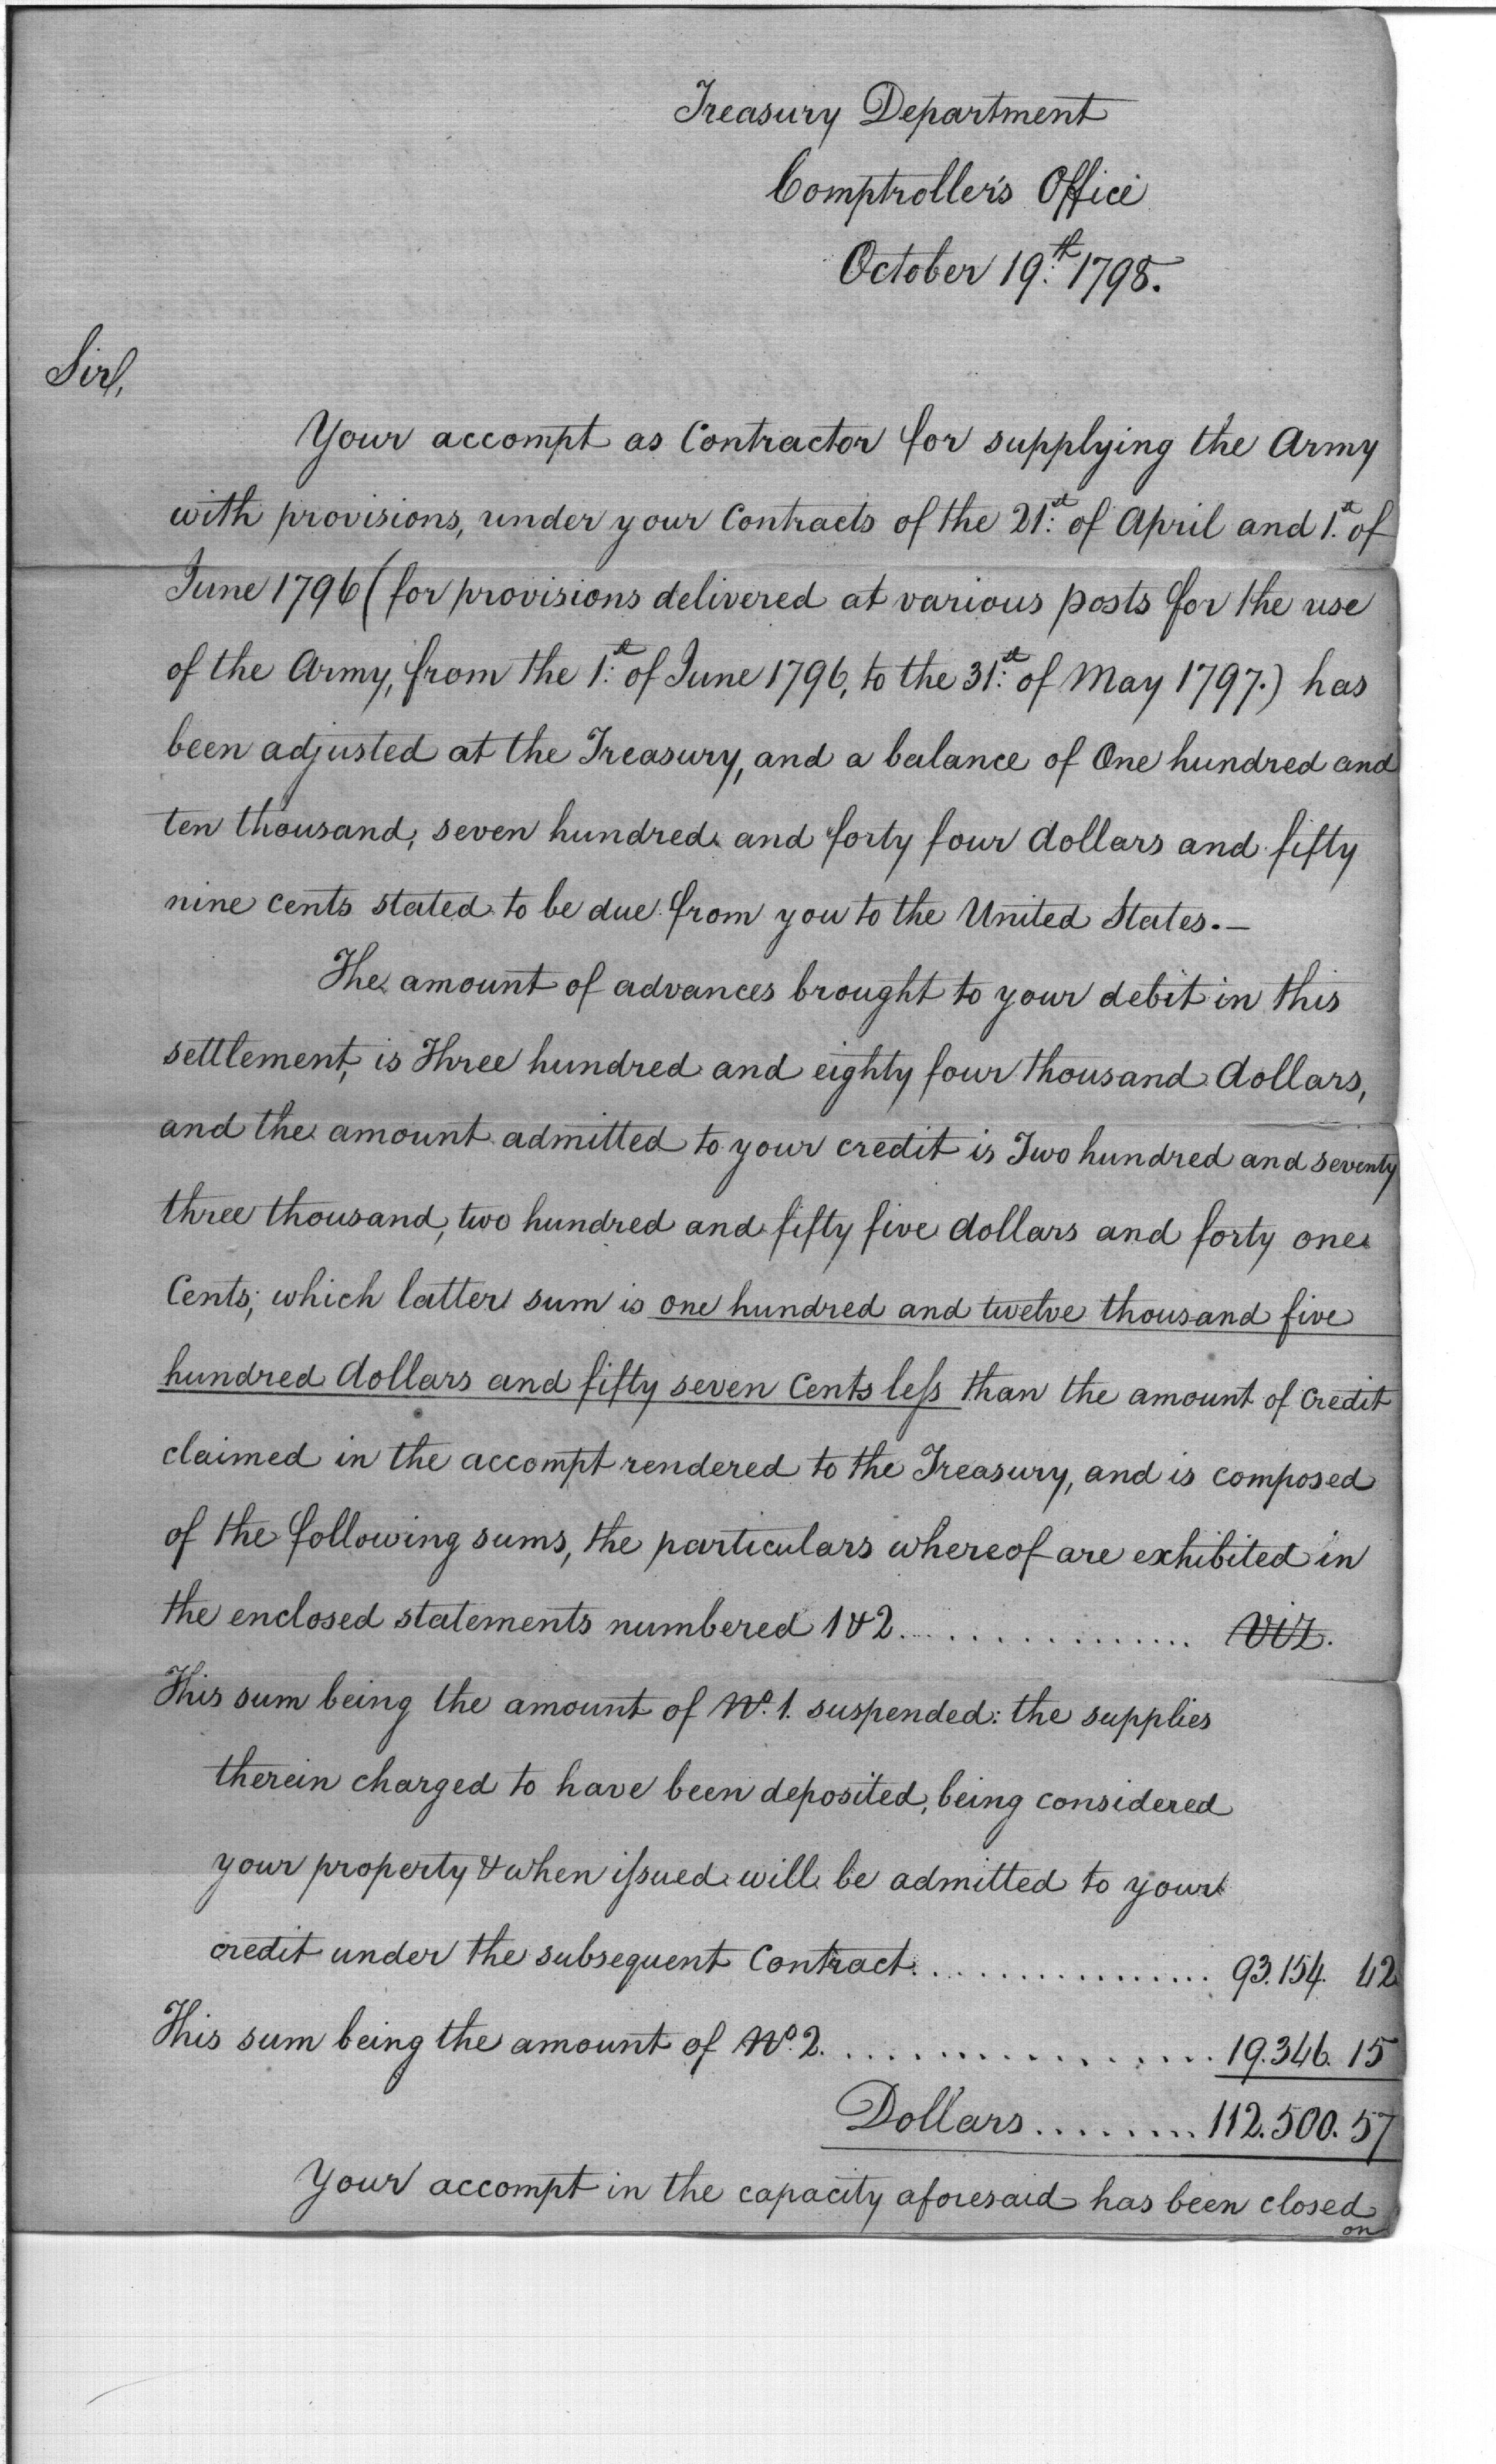 Treasury Department
Comptroller's Office
October 19th 1798.
Sir,
Your accompt as Contractor for supplying the Army
with provisions, under your Contracts of the 21st of April and 1st of
June 1796 (for provisions delivered at various posts for the use
of the Army, from the 1st of June 1796, to the 31st of May 1797.) has
been adjusted at the Treasury, and a balance of One hundred and
ten thousand, seven hundred and forty four dollars and fifty
nine cents stated to be due from you to the United States.—
The amount of advances brought to your debit in this
settlement, is Three hundred and eighty four thousand dollars,
and the amount admitted to your credit is Two hundred and seventy
three thousand, two hundred and fifty five dollars and forty one
Cents; which latter sum is one hundred and twelve thousand five
hundred dollars and fifty seven Cents less than the amount of Credit
claimed in the accompt rendered to the Treasury, and is composed
of the following sums, the particulars whereof are exhibited in
the enclosed statements numbered 1 & 2................. Viz.
This sum being the amount of No. 1. suspended: the supplies
therein charged to have been deposited, being considered
your property & when issued will be admitted to your
credit under the subsequent Contract.................. 93.154. 42
This sum being the amount of No. 2................... 19.346. 15
Dollars......... 112.500. 57
Your accompt in the capacity aforesaid has been closed
on